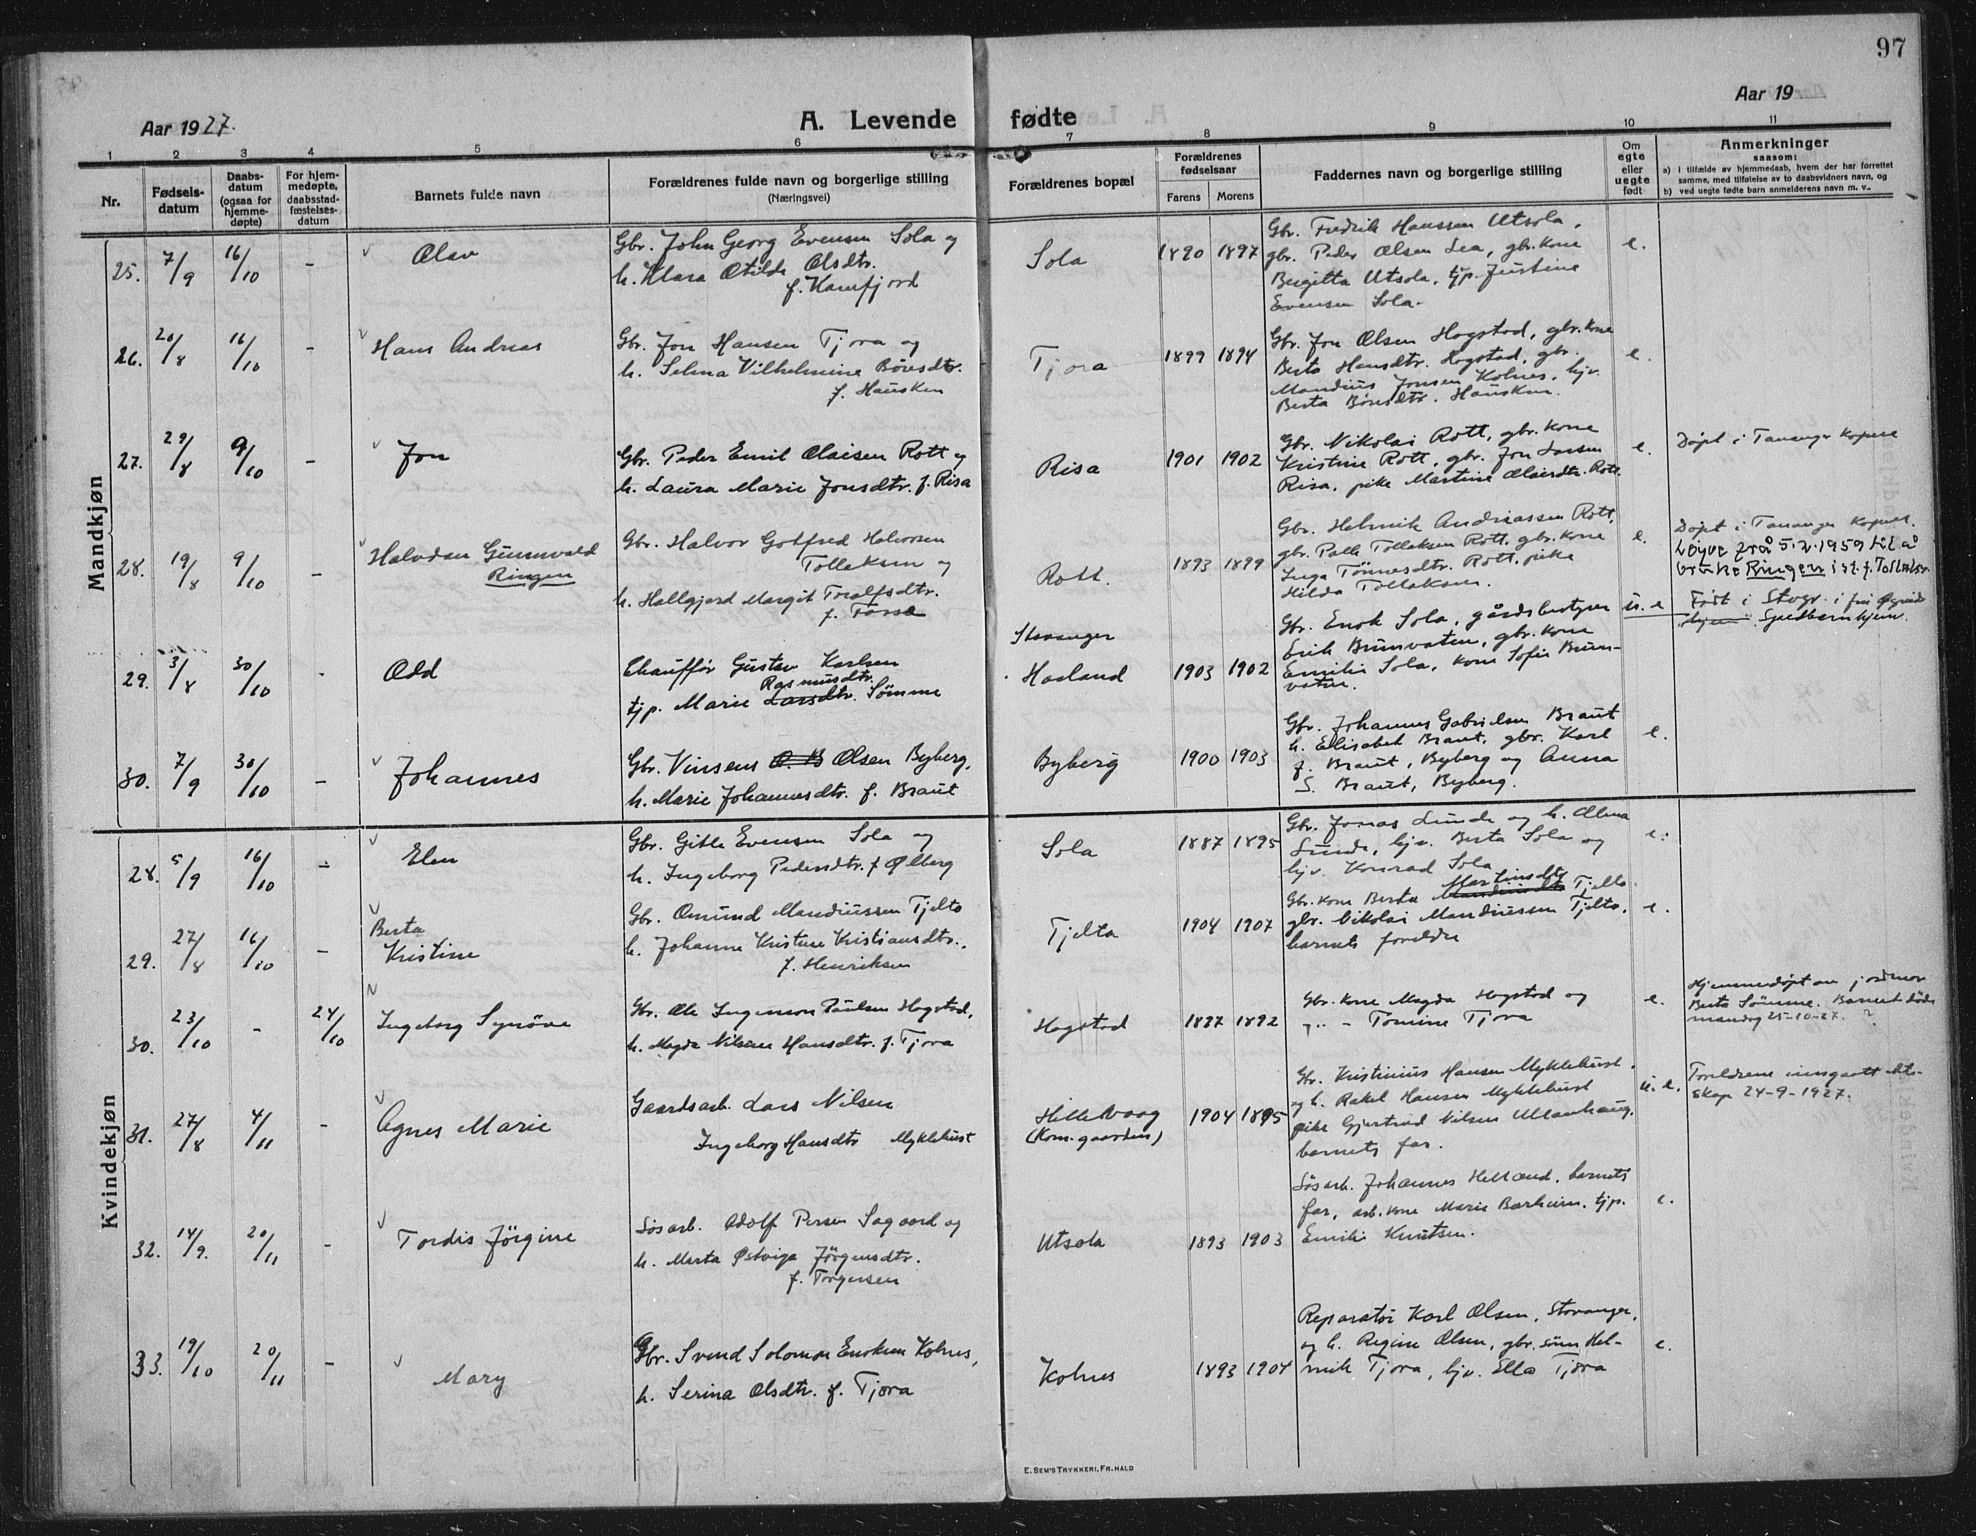 97
Aar 1927.
A. Levende fødte
Aar 19
1 2 3 4 5 6 7 8 9 10 11
Nr.
Fødsels-
datum
Daabs-
datum
(ogsaa for
hjemme-
døpte)
For hjem-
medøpte,
daabsstad-
fæstelses-
datum
Barnets fulde navn
Forældrenes fulde navn og borgerlige stilling
(Næringsvei)
Forældrenes bopæl
Forældrenes
fødselsaar
Farens Morens
Faddernes navn og borgerlige stilling
Om
egte
eller
uegte
født
Anmerkninger
saasom:
a) i tilfælde av hjemmedaab, hvem der har forrettet
samme, med tilføielse av to daabsvidners navn, og
b) ved uegte fødte barn anmelderens navn m. v..
Mandkjøn
25. 7/9 16/10 - Olav
Gbr. John Georg Evensen Sola og
h. Klara Otilde Olsdtr.
f. Kamfjord
Sola 1890 1897
Gbr. Fredrik Hanssen Utsola,
gbr. Peder Olsen Lea, gbr. kone
Birgitta Utsola, tjp. Justine
Evensen Sola.
e.
26. 20/8 16/10 - Hans Andreas
Gbr. Jon Hansen Tjora og
h. Selma Vilhelmine Børesdtr.
f. Hausken
Tjora 1899 1894
Gbr. Jon Olsen Hogstad, gbr. kone
Berta Hansdtr. Hogstad, gbr.
Mandius Jonsen Kolnes, hjv.
Berta Børesdtr. Hausken.
e.
27. 29/8 9/10 - Jon
Gbr. Peder Emil Olaisen Rott og
h. Laura Marie Jonsdtr. f. Risa
Risa 1901 1902
Gbr. Nikolai Rott, gbr. kone
Kristine Rott, gbr. Jon Larsen
Risa, pike Martine Olaisdtr. Rott.
e.
Døpt i Tananger Kapell
28. 19/8 9/10 - Halvdan Gunnvald
Ringen
Gbr. Halvor Gotfred Halvorsen
Tollaksen og
h. Hallgjerd Margit Toralfsdtr.
f. Forsa
Rott. 1893 1899
Gbr. Helmik Andreassen Rott,
gbr. Palle Tollaksen Rott, gbr. kone
Inga Tønnesdtr. Rott, pike
Hilda Tollaksen.
e.
Døpt i Tananger Kapell.
Løyve frå 5.2.1959 til å
bruke Ringen i st. f. Tollaksen
29. 3/8 30/10 - Odd
Chauffør Gustav Karlsen
Rasmusdtr.
tjp. Marie Larsdtr. Sømme
Stavanger
Haaland 1903 1902
Gbr. Enok Sola, gårdsbestyrer
Erik Brunvatne, gbr. kone
Emilie Sola, kone Sofie Brun-
vatne.
u. e
Født i Stvgr. i
hjem. Spedbarnhjem.
30. 7/9 30/10 - Johannes
Gbr. Vinsens O. B Olsen Byberg,
h. Marie Johannesdtr. f. Braut
Byberg 1900 1903
Gbr. Johannes Gabrielsen Braut
h. Elisabet Braut, gbr. Karl
J. Braut, Byberg og Anna
S. Braut, Byberg.
e.
Kvindekjøn
28. 5/9 16/10 - Elen
Gbr. Gitle Evensen Sola og
h. Ingeborg Pedersdtr. f. Ølberg
Sola 1887 1895
Gbr. Jonas Sunde og h. Alma
Sunde, hjv. Berta Sola og
hjv. Konrad Sola
e.
29. 27/8 16/10 - Berta
Kristine
Gbr. Omund Mandiussen Tjelta
h. Johanne Kristine Kristiansdtr.,
f. Henriksen
Tjelta 1904 1907
Martinsdtr
Gbr. kone Berta Mandiusdtr Tjelta
gbr. Nikolai Mandiussen Tjelta,
barnets foreldre
e.
30. 23/10 - 24/10 Ingeborg Synøve
Gbr. Ole Ingemon Paulsen Hogstad,
h. Magda Nilsine Hansdtr. f. Tjora
Hogstad 1887 1892
Gbr. kone Magda Hogstad og
" - Tomine Tjora
e.
Hjemmedøpt av jordmor
Berta Sømme. Barnet døde
mandag 25-10-27. ?
31. 27/8 4/11 - Agnes Marie
Gaardsarb. Lars Nilsen
Ingeborg Hansdtr Myklebust
Hillevaag
(Kom. gaarden) 1904 1895
Gbr. Kristinius Hansen Myklebust,
og h. Rakel Hansen Myklebust
pike Gjertrud Nilsen Ullandhaug,
barnets far.
u. e.
Foreldrene inngaatt ekte-
skap 24-9-1927.
32. 14/9. 20/11 - Tordis Jørgine
Løsarb. Adolf Persen Sagaard og
h. Marta Østvige Jørgensdtr.
f. Torgersen
Utsola 1893 1903
Løsarb. Johannes Helland, barnets
far, arb. kone Marie Barheim, tjp.
Emilie Knutsen.
e.
33. 19/10 20/11 - Mary
Gbr. Svend Solomon Enoksen Kolnes,
h. Serina Olsdtr. f. Tjora
Kolnes 1893 1904
Reparatør Karl Olsen, Stavanger,
og h. Regine Olsen, gbr. sønn Hel-
mik Tjora, hjv. Ella Tjora
e.
E. SEM'S TRYKKERI, FR.HALD